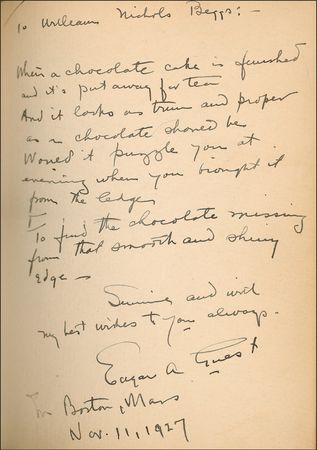 To William Nichols Beggs: -
When a chocolate cake is finished
and it's put away for tea
And it looks as trim and proper
as a chocolate should be
Would it puzzle you at
evening when you brought it
from the ledge
To find the chocolate missing
from that smooth and shiny
edge -
Sincerely and with
my best wishes to you always.
Edgar A Guest
Boston, Mass
Nov. 11, 1927